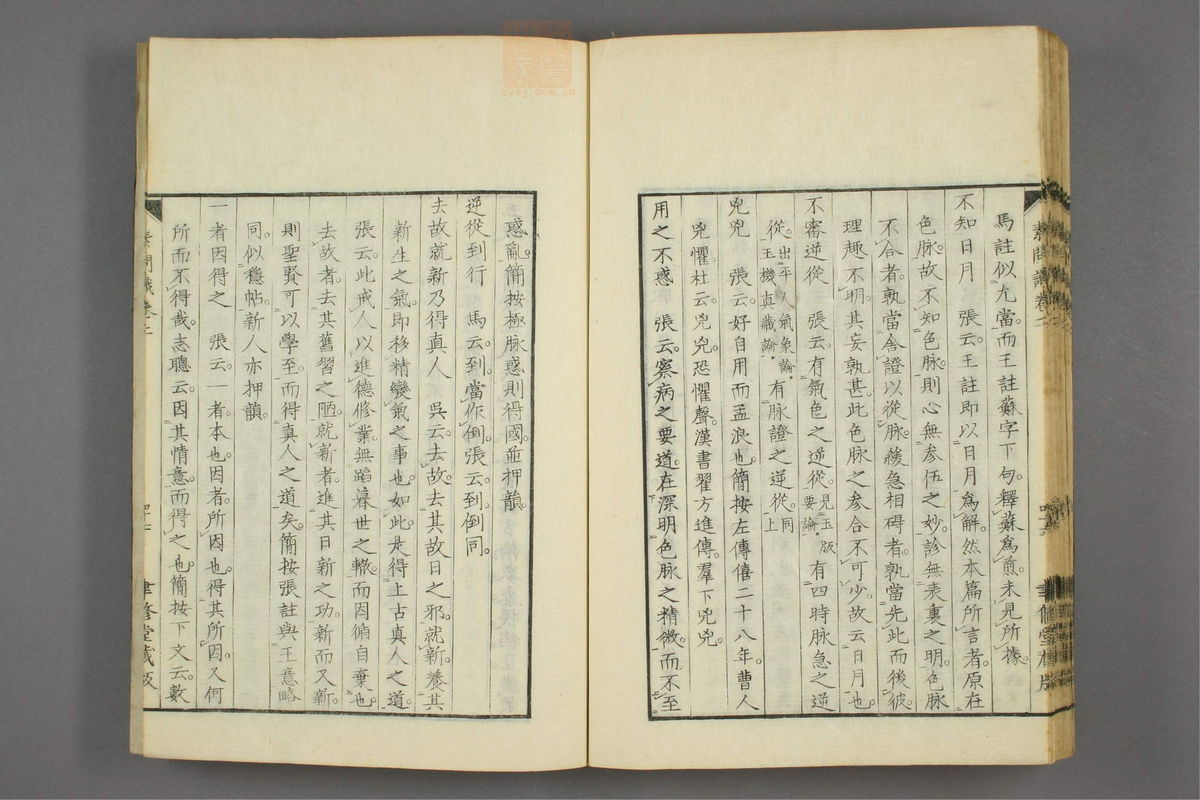 馬註似允當而王註蘇字下句釋蘇爲
不知日月　張云王註即以日月爲解然本篇所言者原在
色脉故不知色脉則心無參伍之妙診無表裏之明色脉
不合者孰當舍證以從脉緩急相碍者孰當先此而後彼
理趣不明其妄孰甚此色脉之參合不可少故云日月也
不審逆從　張云有氣色之逆從見玉版要論有四時脉急之逆
從出平人氣象論玉機真藏論有脉證之逆從同上
兇兇　張云好自用而孟浪也簡按左傳僖二十八年曹人
兇懼杜云兇兇恐懼聲漢書翟方進傳羣下兇兇
用之不惑　張云察病之要道在深明色脉之精微而不至
惑亂簡按極脉惑則得國並押韻
逆從到行　馬云到當作倒張云到倒同
去故就新乃得真人　吳云去故去其故日之邪就新養其
新生之氣即移精變氣之事也如此是得上古真人之道
張云此戒人以進德修業無蹈暮世之轍而因循自棄也
去故者去其舊習之陋就新者進其日新之功新而又新
則聖賢可以學至而得真人之道矣簡按張註與王意略
同似穩帖新人亦押韻
一者因得之　張云一者本也因者所因也得其所因又何
所而不得哉志聰云因其情意而得之也簡按下文云數
素問識卷二
聿修堂藏版